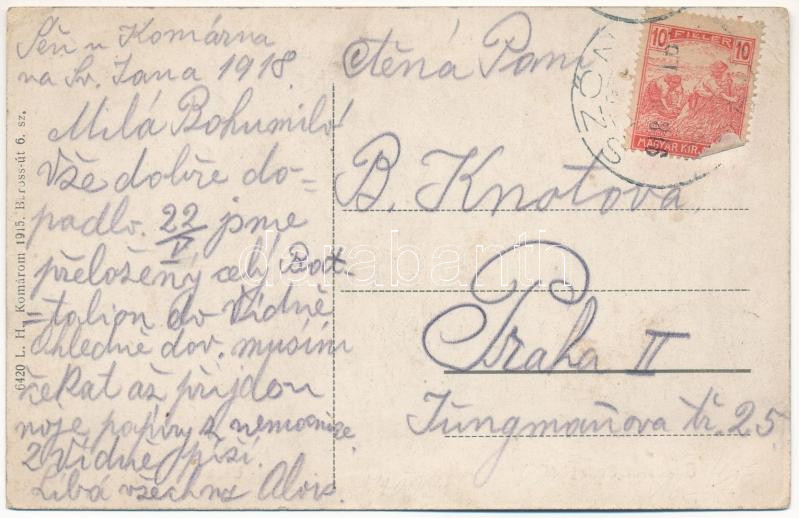 u Komárna
na Sv. Jana 1918
Milá Bohumilo!
Vše dobře do-
padlo. 22/V jsme
přeložený celý Bat-
=talion do Vídně
Ohledně dov. musím
čekat až přijdou
moje papíry z nemocnice.
Z Vídně píši.
Líbá všechny Alois.
ctěná Paní
B. Knotova
Praha II
Jungmaňova tř. 25
6420 L. H. Komárom 1915. Baross-út 6. sz.
10 FILLÉR 10
MAGYAR KIR.
SZŐN
darabanth